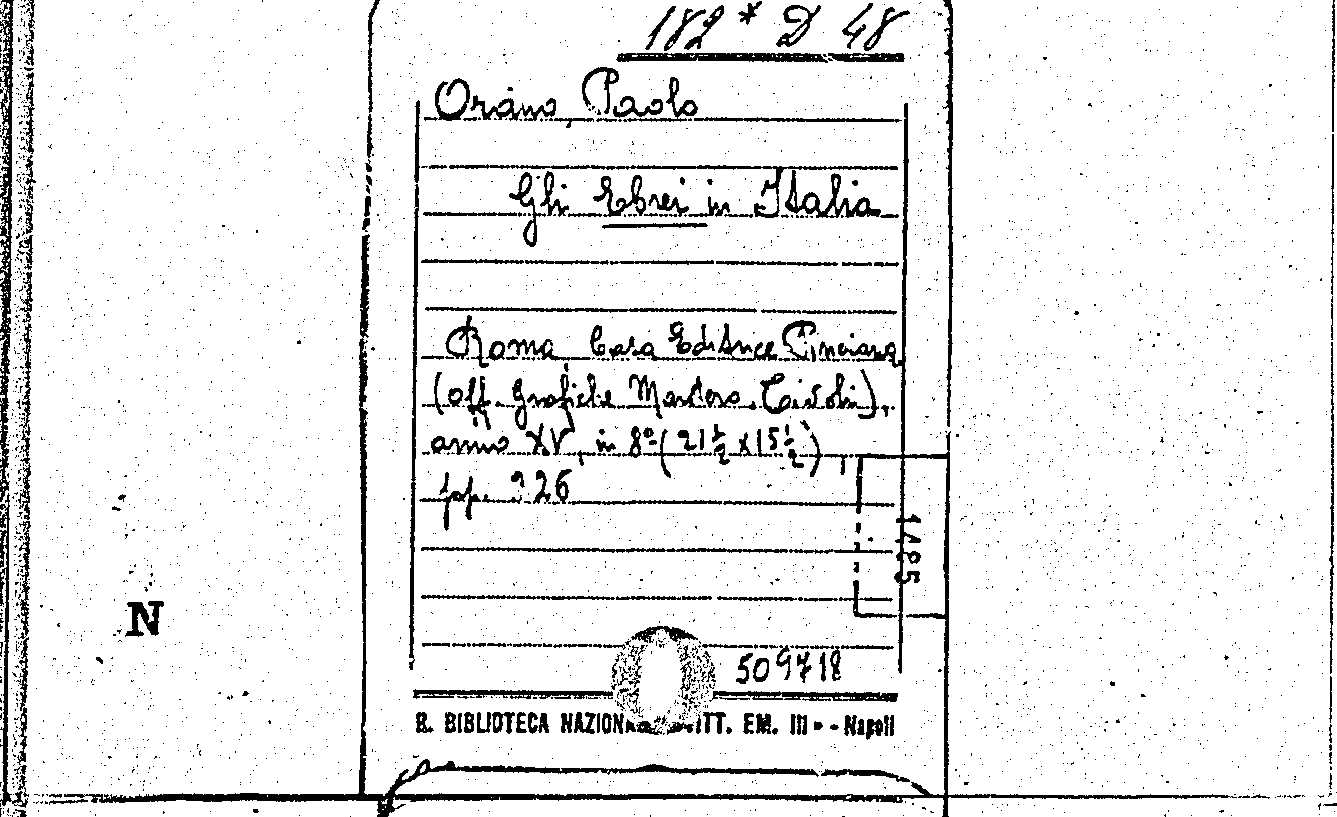 182 * D 48
Orano, Paolo
Gli Ebrei in Italia
Roma, Casa Editrice Pinciana
(off. Grafiche Mantero. Tivoli),
anno XV, in 8º (21 ½ x 15 ½),
pp. 226
1485
N
509718
R. BIBLIOTECA VITT. EM. III - Napoli